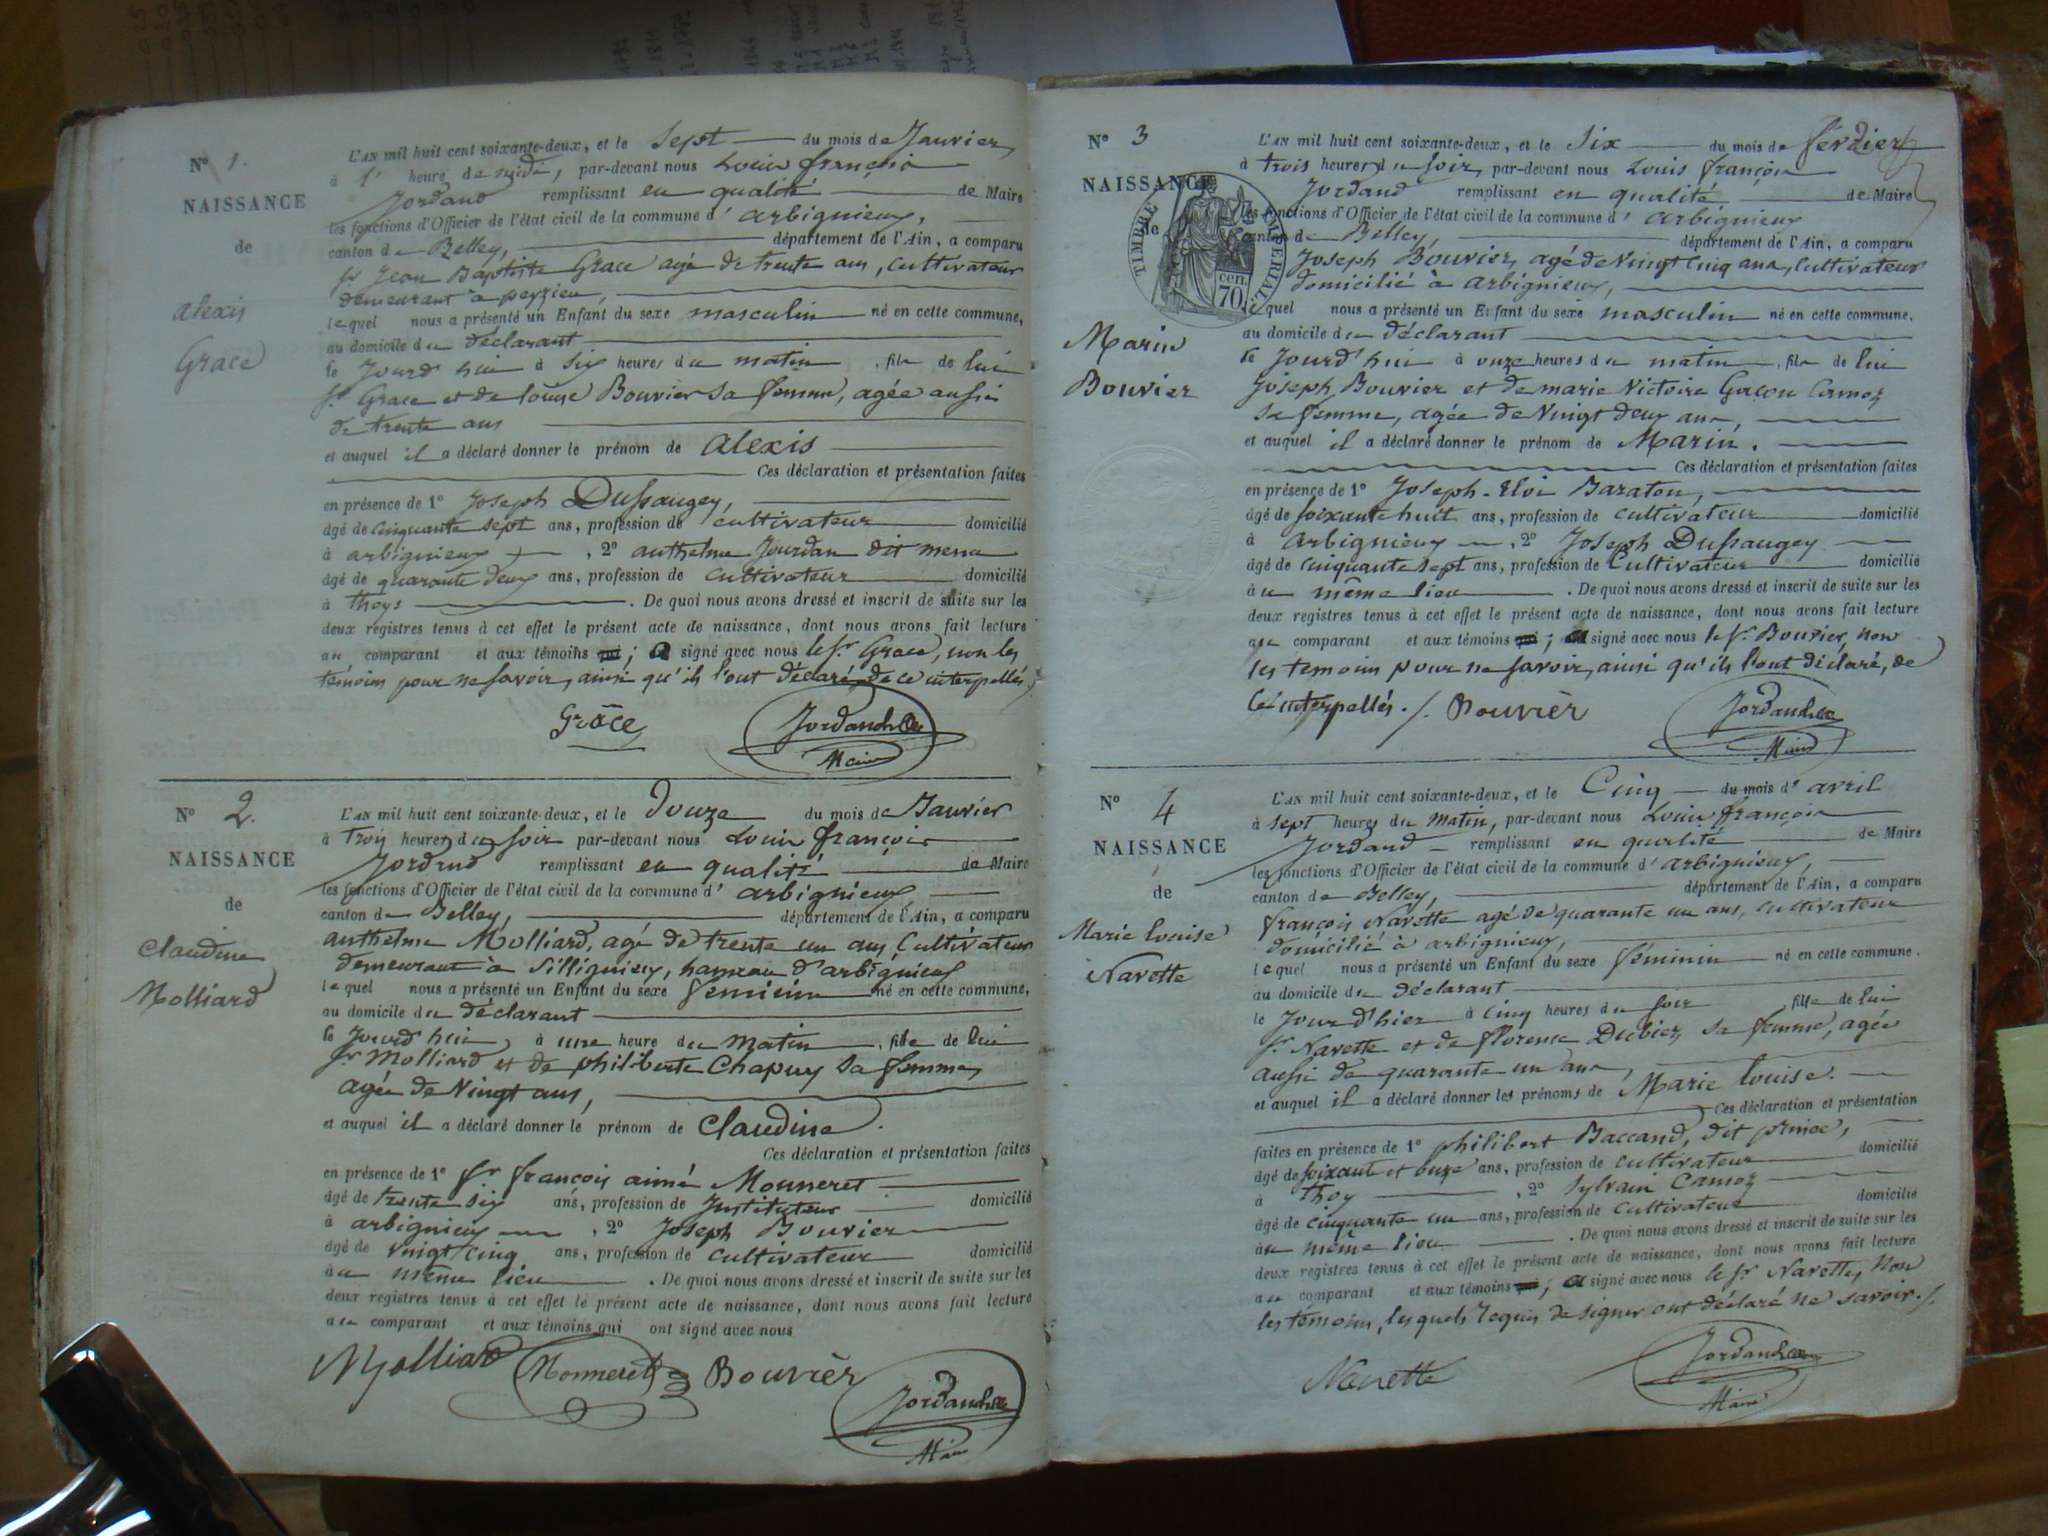 N° 1.
NAISSANCE
de
alexis
Grace
L'AN mil huit cent soixante-deux, et le Sept du mois de Janvier
à 1 heure de midi, par-devant nous Louis françois
Jordand remplissant en qualité de Maire
les fonctions d'Officier de l'état civil de la commune d' arbignieux,
canton de Belley, département de l'Ain, a comparu
sr Jean Baptiste Grace agé de trente ans, cultivateur
demeurant à peyzieu,
lequel nous a présenté un Enfant du sexe masculin né en cette commune,
au domicile du déclarant
le Jourd'hui à six heures du matin, fils de lui
sr Grace et de louise Bouvier sa femme, agée aussi
de trente ans
et auquel il a déclaré donner le prénom de alexis
Ces déclaration et présentation faites
en présence de 1° Joseph Dussaugey,
âgé de cinquante sept ans, profession de cultivateur domicilié
à arbignieux, 2° anthelme Jourdan dit menu
âgé de quarante deux ans, profession de cultivateur domicilié
à thoys. De quoi nous avons dressé et inscrit de suite sur les
deux registres tenus à cet effet le présent acte de naissance, dont nous avons fait lecture
au comparant et aux témoins qui; a signé avec nous le sr Grace, non les
témoins pour ne savoir, ainsi qu'ils l'ont déclaré, de ce interpellés,
Grâce
Jordand
Maire
N° 2.
NAISSANCE
de
Claudine
Molliard
L'AN mil huit cent soixante-deux, et le Douze du mois de Janvier
à trois heures du soir par-devant nous Louis françois
Jordand remplissant en qualité de Maire
les fonctions d'Officier de l'état civil de la commune d' arbignieux,
canton de Belley, département de l'Ain, a comparu
anthelme Molliard, agé de trente un ans, Cultivateur
demeurant à Sillignieux, hameau d'arbignieux
lequel nous a présenté un Enfant du sexe femiein né en cette commune,
au domicile du déclarant
le Jourd'hui, à une heure du matin, fille de lui
sr Molliard et de philiberte Chapuy sa femme,
agée de Vingt ans,
et auquel il a déclaré donner le prénom de Claudine.
Ces déclaration et présentation faites
en présence de 1° sr françois aimé Monneret
âgé de trente six ans, profession de Instituteur domicilié
à arbignieux, 2° Joseph Bouvier
âgé de vingt cinq ans, profession de cultivateur domicilié
au même lieu. De quoi nous avons dressé et inscrit de suite sur les
deux registres tenus à cet effet le présent acte de naissance, dont nous avons fait lecture
au comparant et aux témoins qui ont signé avec nous
Molliard Monneret Bouvièr
Jordand
Maire
N° 3
NAISSANCE
de
TIMBRE IMPERIAL
70 cen.
Marin
Bouvier
L'AN mil huit cent soixante-deux, et le Six du mois de
à trois heures du soir, par-devant nous Louis françois
Jordand remplissant en qualité de Maire
les fonctions d'Officier de l'état civil de la commune d' arbignieux
canton de Belley, département de l'Ain, a comparu
Joseph Bouvier, agé de Vingt cinq ans, cultivateur
domicilié à arbignieux,
lequel nous a présenté un Enfant du sexe masculin né en cette commune,
au domicile du déclarant
le Jourd'hui à onze heures du matin, fils de lui
Joseph Bouvier et de marie Victoire Gacon Camoz
sa femme, agée de Vingt deux ans,
et auquel il a déclaré donner le prénom de Marin.
Ces déclaration et présentation faites
en présence de 1° Joseph-Eloi Baraton,
âgé de soixante huit ans, profession de cultivateur domicilié
à arbignieux, 2° Joseph Dussaugey
âgé de cinquante sept ans, profession de Cultivateur domicilié
au même lieu. De quoi nous avons dressé et inscrit de suite sur les
deux registres tenus à cet effet le présent acte de naissance, dont nous avons fait lecture
au comparant et aux témoins qui; a signé avec nous le sr Bouvier, non
les témoins pour ne savoir, ainsi qu'ils l'ont déclaré, de
ce interpellés./. Bouvièr
Jordand
Maire
N° 4
NAISSANCE
de
Marie louise
Navette
L'AN mil huit cent soixante-deux, et le Cinq du mois d' avril
à sept heures du matin, par-devant nous Louis françois
Jordand remplissant en qualité de Maire
les fonctions d'Officier de l'état civil de la commune d' arbignieux,
canton de Belley, département de l'Ain, a comparu
françois Navette agé de quarante un ans, cultivateur
domicilié à arbignieux,
lequel nous a présenté un Enfant du sexe féminin né en cette commune.
au domicile du déclarant
le Jour d'hier à cinq heures du soir, fille de lui
sr Navette et de florence Dubiez, sa femme, agée
aussi de quarante un ans,
et auquel il a déclaré donner les prénoms de Marie louise.
Ces déclaration et présentation
faites en présence de 1° philibert Baccand, dit prince,
âgé de soixante et onze ans, profession de cultivateur domicilié
à thoy, 2° Sylvain Camoz
âgé de cinquante un ans, profession de cultivateur domicilié
au même lieu. De quoi nous avons dressé et inscrit de suite sur les
deux registres tenus à cet effet le présent acte de naissance, dont nous avons fait lecture
au comparant et aux témoins qui; a signé avec nous le sr Navette, non
les témoins, lesquels requis de signer ont déclaré ne savoir./.
Navette
Jordand
Maire